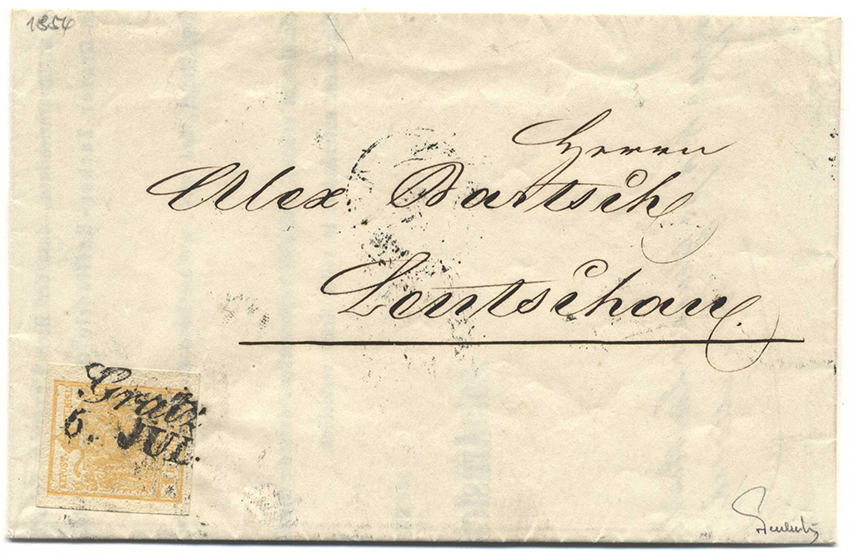 1854
Herrn
Alex. Bartsch
Leutschau.
Gratz
5. JUL.